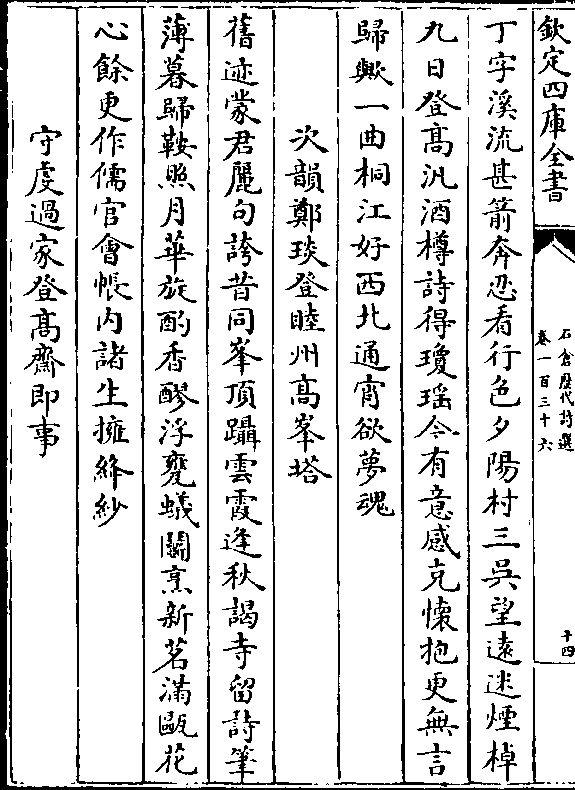 欽定四庫全書
石倉歷代詩選
卷一百三十六
十四
丁字溪流甚箭奔忍看行色夕陽村三吳望遠迷煙棹
九日登髙汎酒樽詩得瓊瑶今有意感克懷抱更無言
歸歟一曲桐江好西北通宵欲夢魂
次韻鄭琰登睦州髙峯塔
舊迹蒙君麗句誇昔同峯頂躡雲霞逢秋謁寺留詩筆
薄暮歸鞍照月華旋酌香醪浮甕蟻鬭烹新茗滿甌花
心餘更作儒官會帳内諸生擁絳紗
守虔過家登髙齋即事